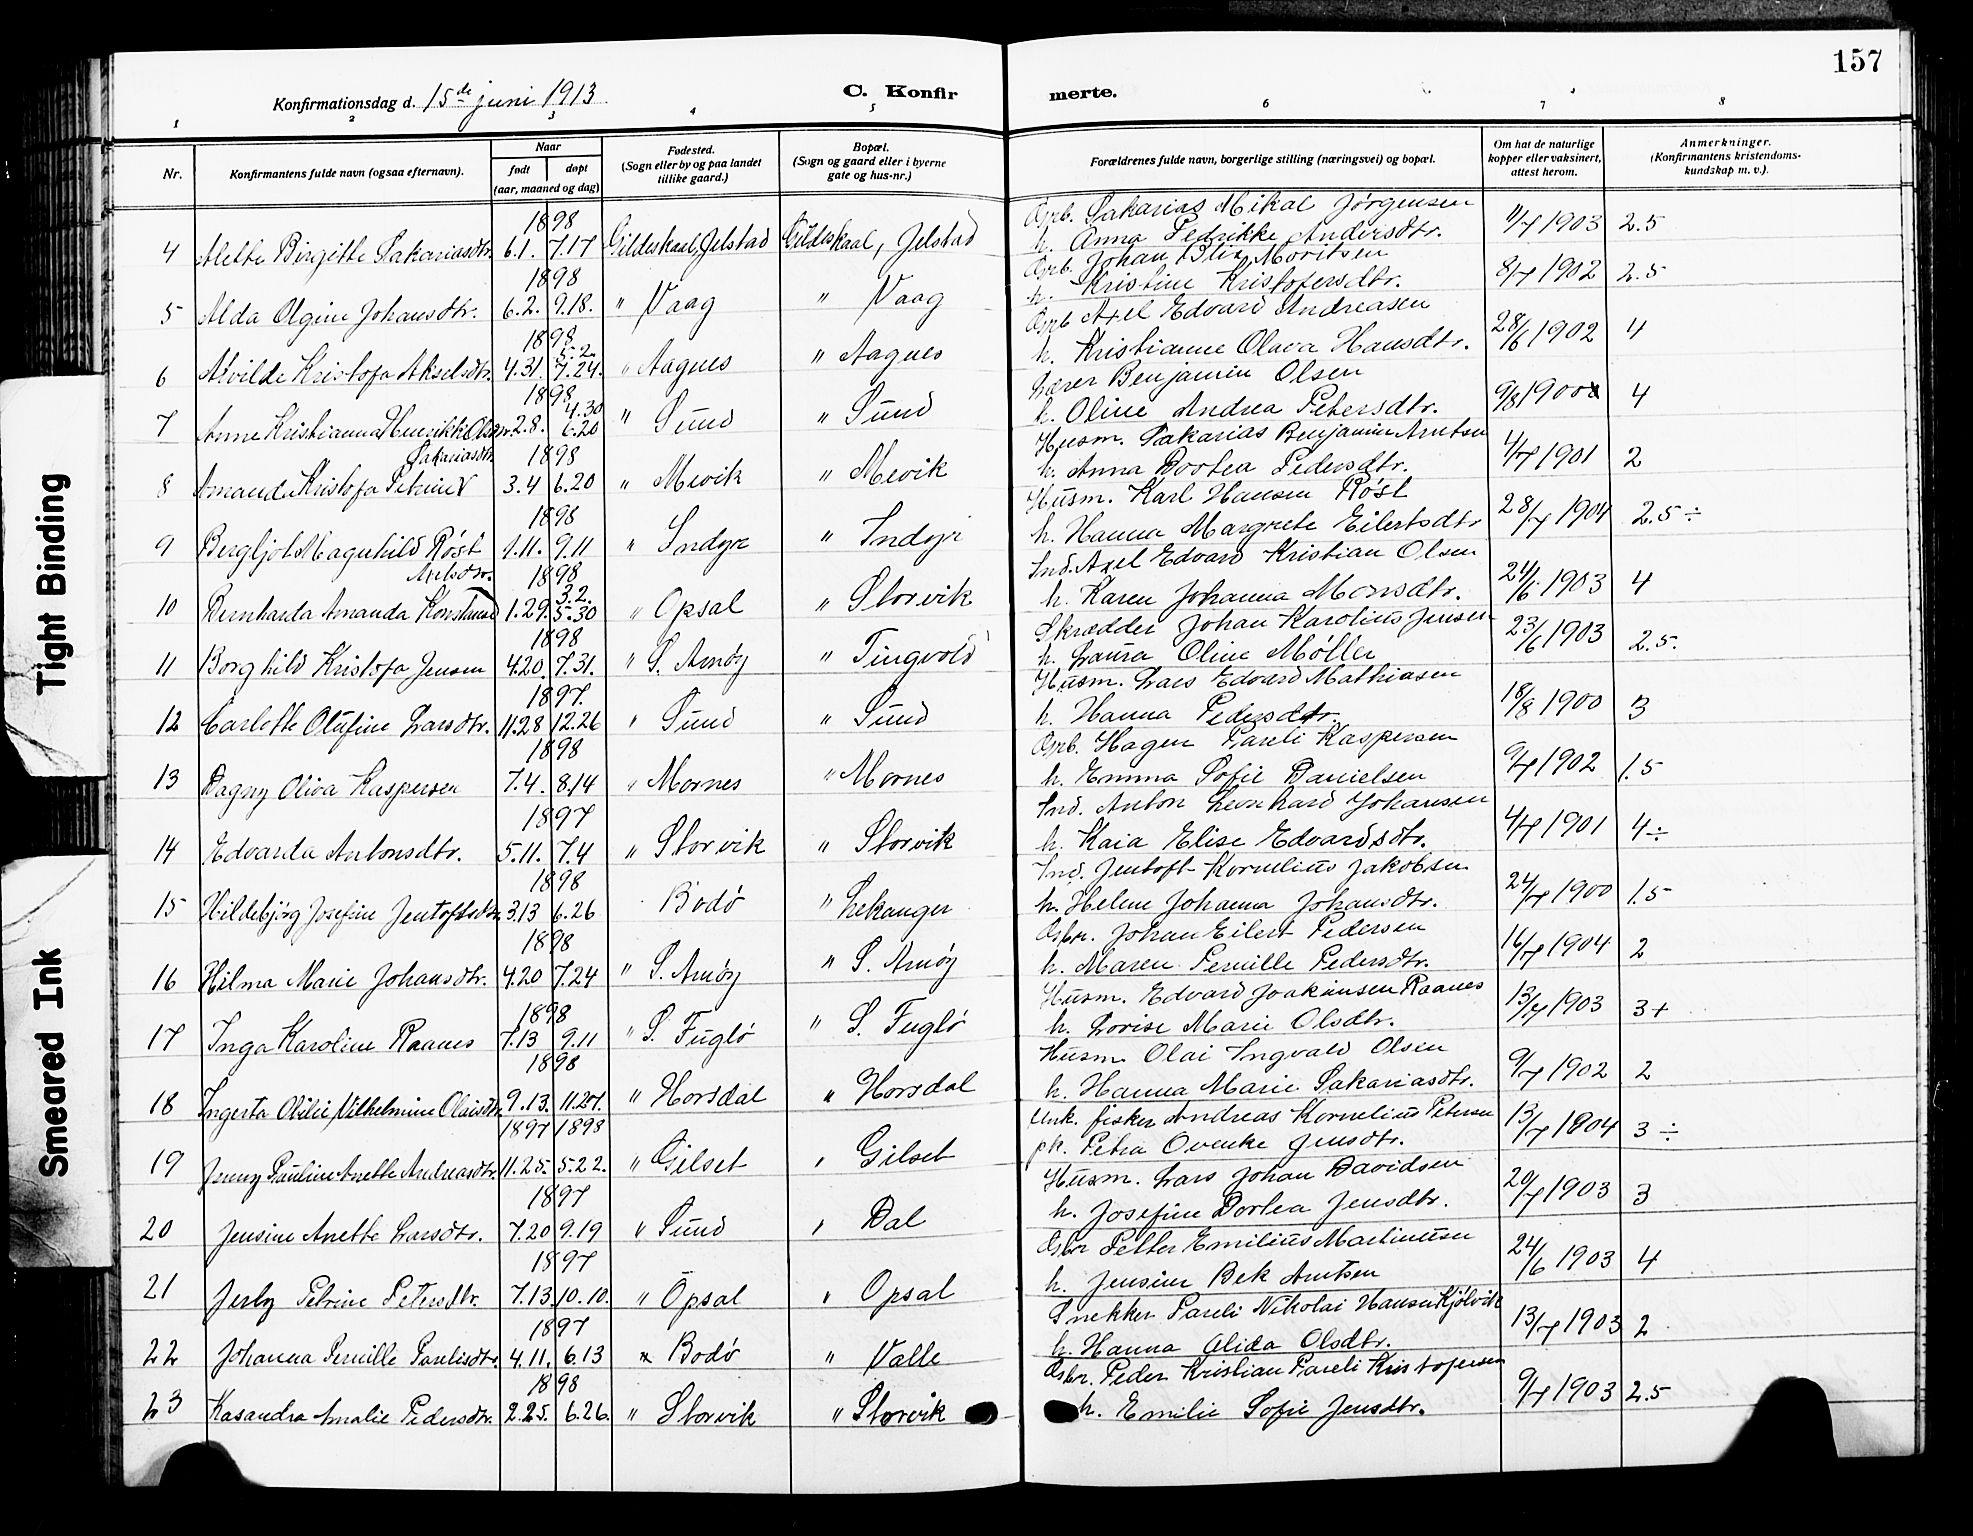 157
Konfirmationsdag d. 15de juni 1913
C. Konfir merte.
1 2 3 4 5 6 7 8
Nr. Konfirmantens fulde navn (ogsaa efternavn). Naar født døpt (aar, maaned og dag) Fødested. (Sogn eller by og paa landet tillike gaard.) Bopæl. (Sogn og gaard eller i byerne gate og hus-nr.) Forældrenes fulde navn, borgerlige stilling (næringsvei) og bopæl. Om hat de naturlige kopper eller vaksinert, attest herom. Anmerkninger. (Konfirmantens kristendoms- kundskap m. v.).
1898 Gprb. Sakarias Mikal Jørgensen
4 Alette Birgitte Sakariasdtr. 6.1. 7.17 Gildeskaal, Jelstad Gildeskaal, Jelstad h. Anna Fedrikke Andersdtr. 11/7 1903 2.5
1898 Gprb. Johan Blix Moritsen
5 Alda Olgine Johansdtr. 6.2. 9.18. " Vaag " Vaag h. Kristine Kristofersdtr. 8/7 1902 2.5
1898 5.2. Gprb Axel Edvard Andreasen
6 Alvilde Kristofa Akselsdtr. 4.31. 7.24. " Aagnes " Aagnes h. Kristianne Olava Hansdtr. 28/6 1902 4
1898 4.30 Lærer Benjamin Olsen
7 Anne Kristianna Henrikke Olsen 2.8. 6.20 " Sund " Sund h. Oline Andrea Petersdtr. 9/8 1900 4
Sakariasdtr. 1898 Husm. Sakarias Benjamin Arntsen
8 Amanda Kristofa Petrine 3.4 6.20 " Mevik " Mevik h. Anna Dortea Pedersdtr. 4/7 1901 2
1898 Husm. Karl Hansen Røst
9 Bergljot Magnhild Røst 1.11. 9.11 " Indyr " Indyr h. Hanna Margrete Eilertsdtr 28/7 1904 2.5 ÷
Axelsdtr. 1898 3.2. Ind. Axel Edvard Kristian Olsen
10 Bernharda Amanda Konstanse 1.29. 5.30 " Opsal " Storvik h. Karen Johanna Monsdtr. 24/6 1903 4
1898 Skrædder Johan Karolius Jensen
11 Borghild Kristofa Jensen 4.20. 7.31. " S. Arnøy " Tingvold h. Laura Oline Møller 23/6 1903 2.5.
1897. Husm. Lars Edvard Mathiasen
12 Carlette Olufine Larsdtr. 11.28 12.26 " Sund " Sund h. Hanna Pedersdtr. 18/8 1900 3
1898 Gprb. Hagen Pareli Kaspersen
13 Dagny Oliva Kaspersen 7.4. 8.14 " Mornes " Mornes h. Emma Sofie Danielsen 9/7 1902 1.5
1897 Ind. Anton Leonhard Johansen
14 Edvarda Antonsdtr. 5.11. 7.4 " Storvik " Storvik h. Kaia Elise Edvardsdtr. 4/7 1901 4÷
1898 Ind. Jentoft Kornelius Jakobsen
15 Hildebjørg Josefine Jentoftsdtr. 3.13 6.26 Bodø " Lekanger h. Helene Johanna Johansdtr. 24/7 1900 1.5
1898 Gsbr. Johan Eilert Pedersen
16 Hilma Marie Johansdtr. 4.20 7.24 " S. Arnøy " S. Arnøy h. Maren Pernille Pedersdtr. 16/7 1904 2
1898 Husm. Edvard Joakimsen Raanes
17 Inga Karoline Raanes 7.13 9.11 " S. Fuglø " S. Fuglø h. Lovise Marie Olsdtr. 13/7 1903 3+
1898 Husm Olai Ingvald Olsen
18 Ingerta Otilie Vilhelmine Olaisdtr. 9.13. 11.27. " Horsdal " Horsdal h. Hanna Marie Sakariasdtr. 9/7 1902 2
1897 1898 Unk. fisker Andreas Kornelius Petersen
19 Jenny Pauline Anette Andreasdtr. 11.25. 5.22. " Gilset " Gilset pk. Petra Ovenke Jensdtr. 13/7 1804 3 ÷
1897 Husm. Lars Johan Davidsen
20 Jensine Anette Larsdtr. 7.20 9.19 " Sund " Dal h. Josefine Dortea Jensdtr. 20/7 1903 3
1897 Gsbr Petter Emilius Martinusen
21 Jesby Petrine Petersdtr. 7.13. 10.10. " Opsal " Opsal h. Jensine Bek Arntsen 24/6 1903 4
1897 Snekker Pareli Nikolai Hansen Kjölvik
22 Johanna Pernille Parelisdtr. 4.11. 6.13 Bodø " Valle h. Hanna Alida Olsdtr. 13/7 1903 2
1898 Gsbr. Peder Kristian Pareli Kristofersen
23 Kasandra Amalie Pedersdtr. 2.25. 6.26. " Storvik " Storvik h. Emilie Sofie Jensdtr. 9/7 1903 2.5
Tight Binding
Smeared Ink